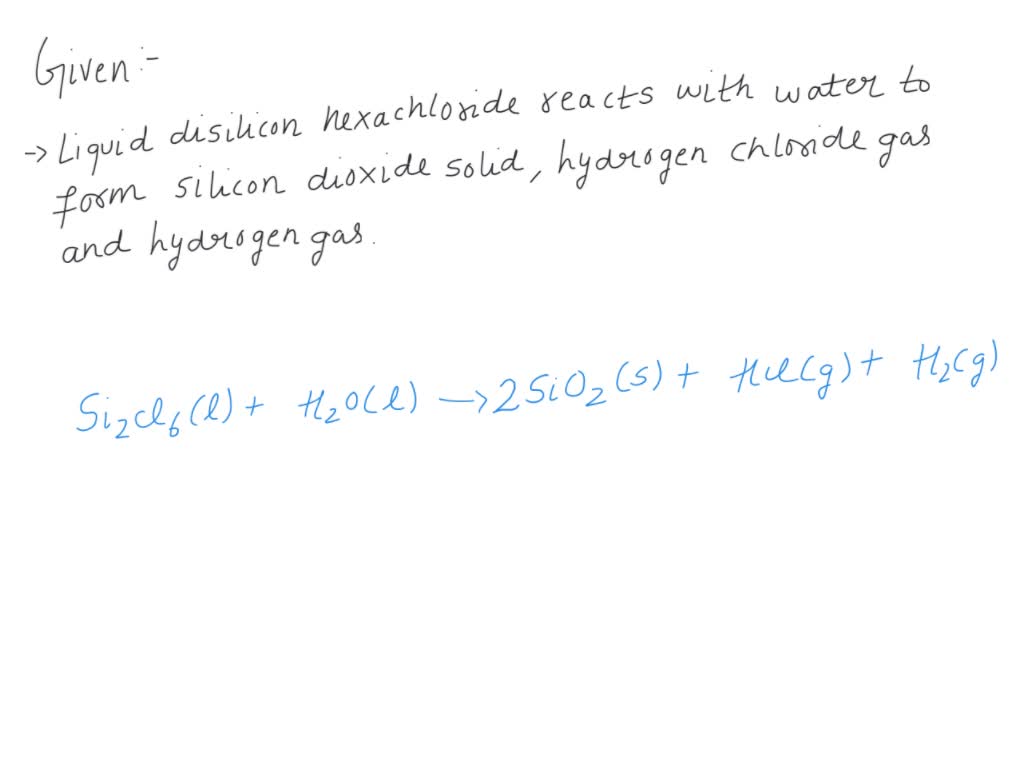 Given:-
-> Liquid disilicon hexachloride reacts with water to
form silicon dioxide solid, hydrogen chloride gas
and hydrogen gas.
Si₂Cl₆(l) + H₂O(l) —> 2SiO₂(s) + HCl(g) + H₂(g)